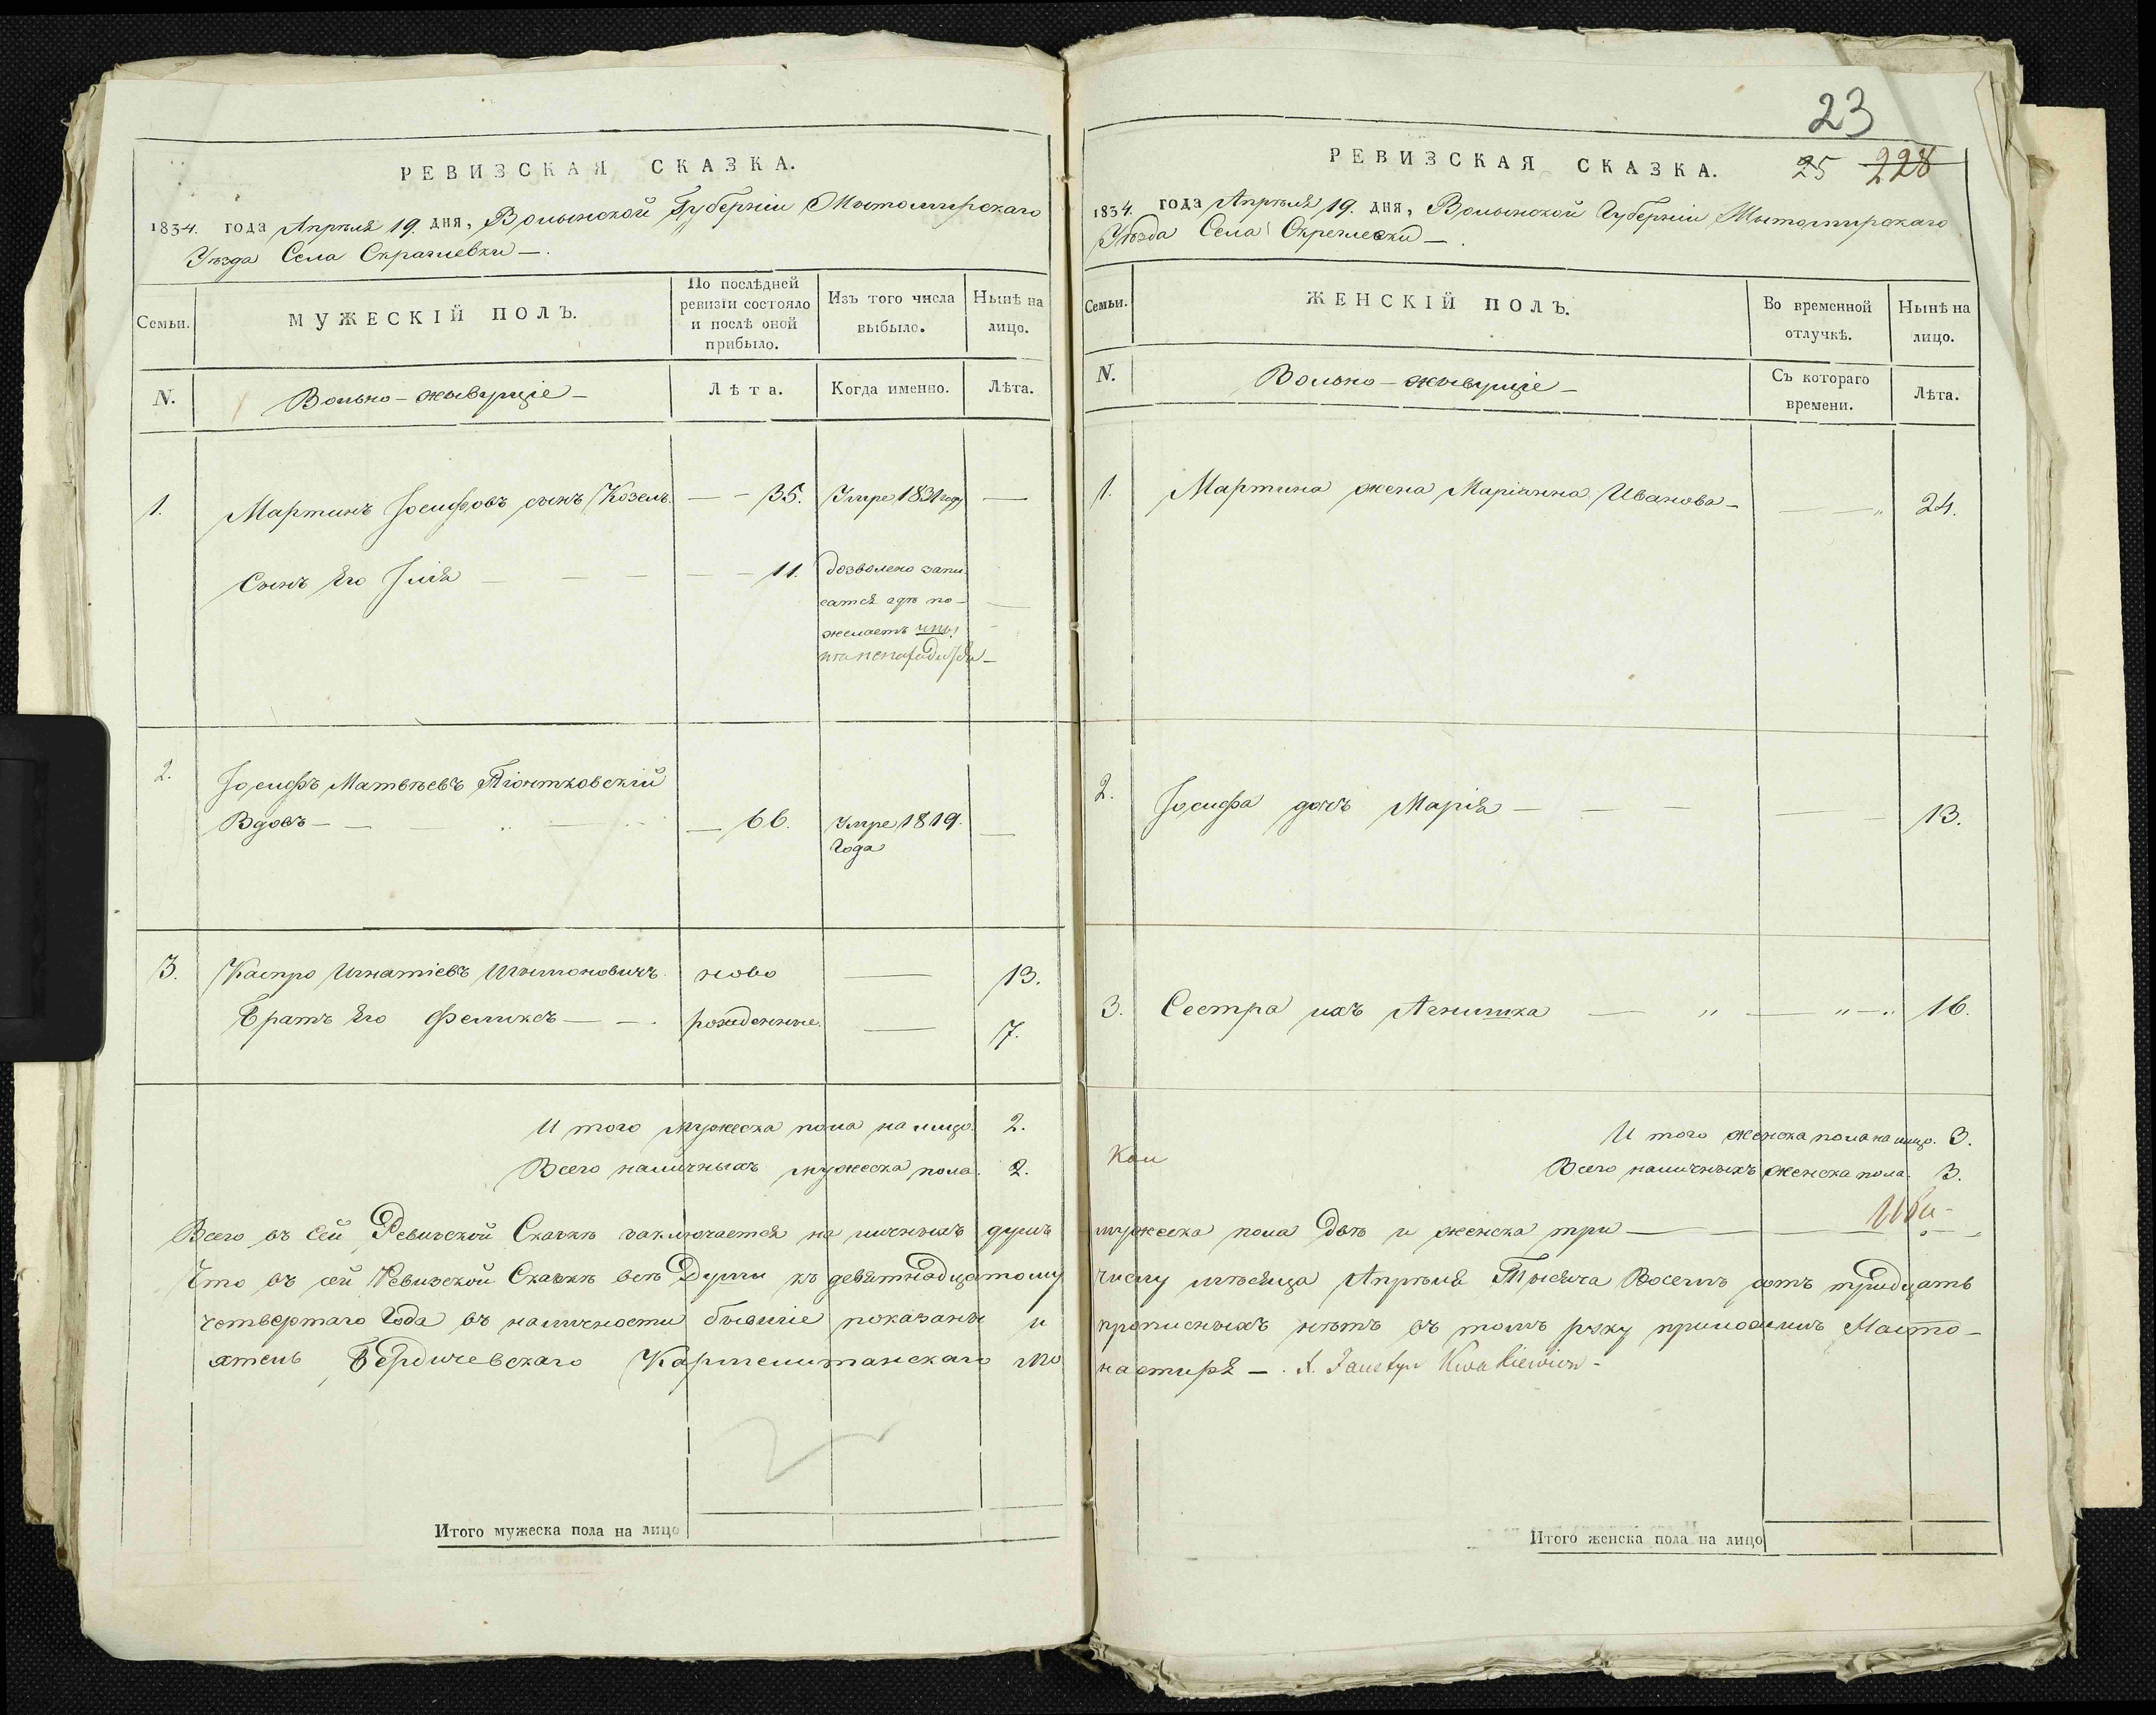 РЕВИЗСКАЯ СКАЗКА.
1834. года Апрѣля 19. дня, Волынской Губерніи Житомирскаго
Уѣзда Села Скраглевки —.
Семьи.
МУЖЕСКІЙ ПОЛЪ.
По послѣдней
ревизіи состояло
и послѣ оной
прибыло.
Изъ того числа
выбыло.
Нынѣ на
лицо.
N.
Вольно - живущіе -
Лѣта.
Когда именно.
Лѣта.
1. Мартинъ Іосифовъ сынъ Козелъ. — - 35. Умре 1831 году —
Сынъ Его Илія — — — — 11. дозволено запи-
сатся гдѣ по-
желаетъ
2. Іосифъ Матвѣевъ Піонтковскій
Вдовъ - — — — 66. Умре 1819. —
Года
3. Каспро Игнатіевъ Шымоновичъ. ново — 13.
Братъ Его Феликсъ — —. рожденные. — 7.
И того мужеска пола на лицо. 2.
Всего наличныхъ мужеска пола. 2.
Всего въ сей Ревизской Сказкѣ заключается на личныхъ душъ
Что въ сей Ревизской Сказкѣ всѣ Души къ девятнадцатому
четвертаго Года въ наличности бывшіе показаны и
ятель Бердичевскаго Кармелитанскаго мо
Итого мужеска пола на лицо
23
РЕВИЗСКАЯ СКАЗКА. 25 228
1834. года Апрѣля 19. дня, Волынской Губерніи Житомирскаго
Уѣзда Села Скреглевки —.
Семьи.
ЖЕНСКІЙ ПОЛЪ.
Во временной
отлучкѣ.
Нынѣ на
лицо.
N.
Вольно - живущіе -
Съ котораго
времени.
Лѣта.
1. Мартина жена Маріанна Иванова - — — „ 24.
2. Іосифа дочь Марія — — — — — 13.
3. Сестра ихъ Агнишка — „ — „ — „ 16.
И того женска пола на лицо. 3.
Всего наличныхъ женска пола. 3.
мужеска пола двѣ и женска три —
числу мѣсяца Апрѣля Тысяча Восемь сотъ тридцать
прописныхъ нѣтъ въ томъ руку приложилъ Насто-
настиря —. X. Faustyn Kwatkiewicz -
Итого женска пола на лицо